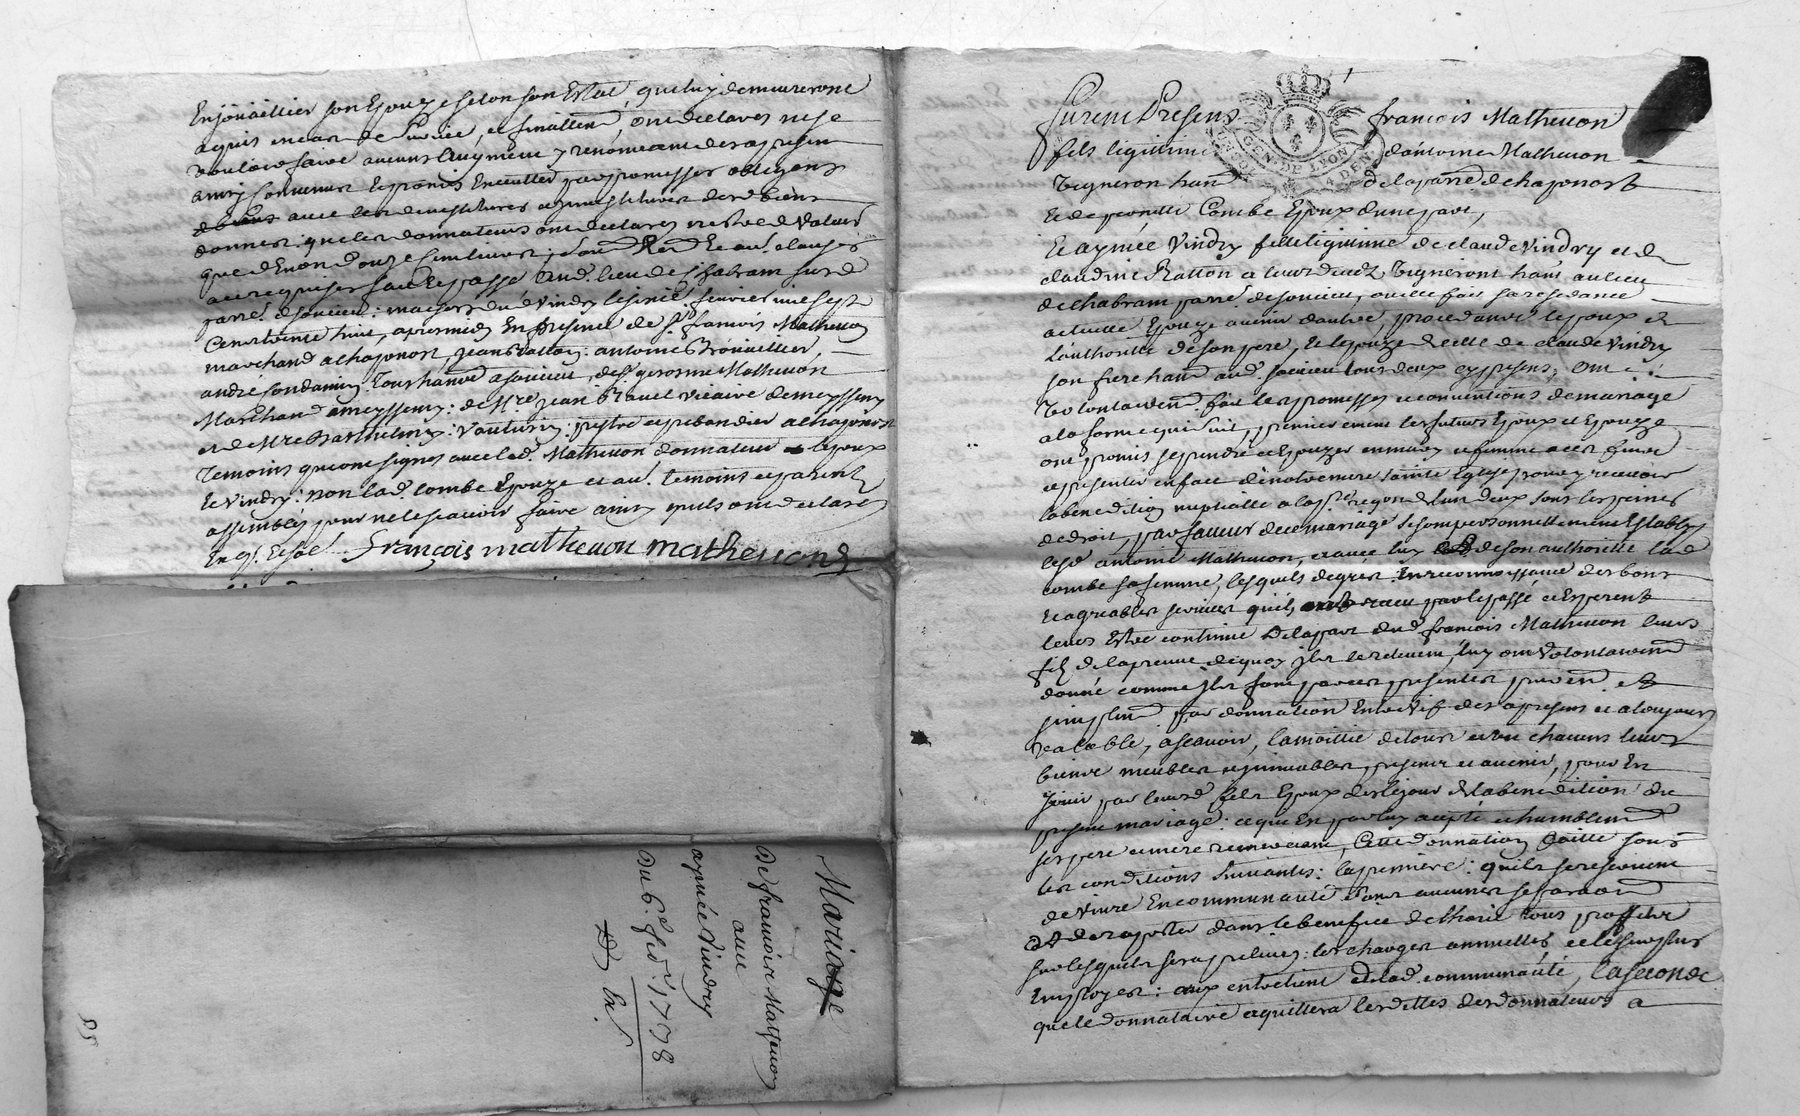 Enjoüailler son Epouze selon son Estat, que luy demeureront
aquis en cas de Survie, et finallem.t ont declarés ne se
vouloir faire aucuns Augment y renonceant des apresent
ainsy convenus Les parties Enceullés par promesses obligeant
de biens avec les
donnés, que les donnateurs ont declarés n'estre de Valeur
que d'Environ douze cent livres, Et au.t clauses
a ce requises fait et passé aud. lieu de Chabram sur d.
parr.e de soucieu: maison dud. Vindry le sixie.e fevrier mil sept
Cent trente huit, apres midy En presence de S.r francois Mathevon
marchand a Chaponost, Jean Ratton: antoine
andré fondanny Tous hants a soucieu, de S.r gerosme Mathevon
Marchand a messimy: de M.re Jean Ravel vicaire de messimy
et de M.re Barthelmy: Vauturin: prestre et prebandier a Chaponost
Temoins qui ont signés avec led. Mathevon donnateur et lepoux
Et Vindry: non lad. Combe Epouze et au.t temoins et parents
assemblés pour ne le scavoir faire ainsy qu'ils ont declarés
Enq.s Et so.e François mathevon mathevon
Mariage
de francois Mathevon
avec
aymée Vindry
du 6.e fev.r 1738
Ex.
85
Furent Presens francois Mathevon
fils legitime d'antoine Mathevon
Vigneron han.t de la parr.e de chaponost
Et de pernette Combe Epoux d'une part,
Et aymée Vindry fille legitime de claude Vindry et de
claudine Ratton a leurs deced. Vignerons hants au lieu
de Chabram parr.e de soucieu, ou elle fait sa residance
actuelle Epouze avenir d'autre, procedants lepoux de
l'authorité de son pere, Et lepouze de celle de claude Vindry
son frere hant aud. soucieu tous deux cy presens, ont
Volontairem.t fait les promesses et conventions de mariage
a la forme qui suit, premierement les futurs Epoux et Epouze
ont promis se prendre et Epouzer en mary et femme a ces fins
se presenter en face de notre mere sainte Eglise pour y recevoir
la benediction nuptialle a la p.re requon de l'un d'eux sous les peines
de droit, par faveur de ce mariage se sont personnellement Establys
led. antoine Mathevon, et avec luy de son authorité lad.
combe sa femme, lesquels de gres En reconnoissance des bons
Et agreables services qu'ils ont receu par le passé et Esperent
leurs Estre continué de la part dud. francois Mathevon leurs
fils de la preuve de quoy ils le relevent, luy ont Volontairem.t
donné comme ils font par ces presentes purem.t et
simplem.t par donnation Entre Vifs des apresens et a toujours
Valable, a scavoir, la moitié de tous et un chacuns leurs
biens meubles et immeubles, presens et avenir, pour En
Jouir par leurd. fils Epoux des le jour de la benediction du
present mariage: ce que En par luy accepté et humblem.t
ses pere et mere remerciant, Cette donnation faitte sous
les conditions Suivantes: la premiere: qu'ils se reservent
de Vivre En communauté sans aucunes separaon
Et de raporter dans le benefice de l'hoirie tous proffits
sur lesquels sera prelevé: les charges annuelles et le surplus
Employer: aux entretient de lad. communauté, la seconde
que le donnataire aquittera les dettes des donnateurs a